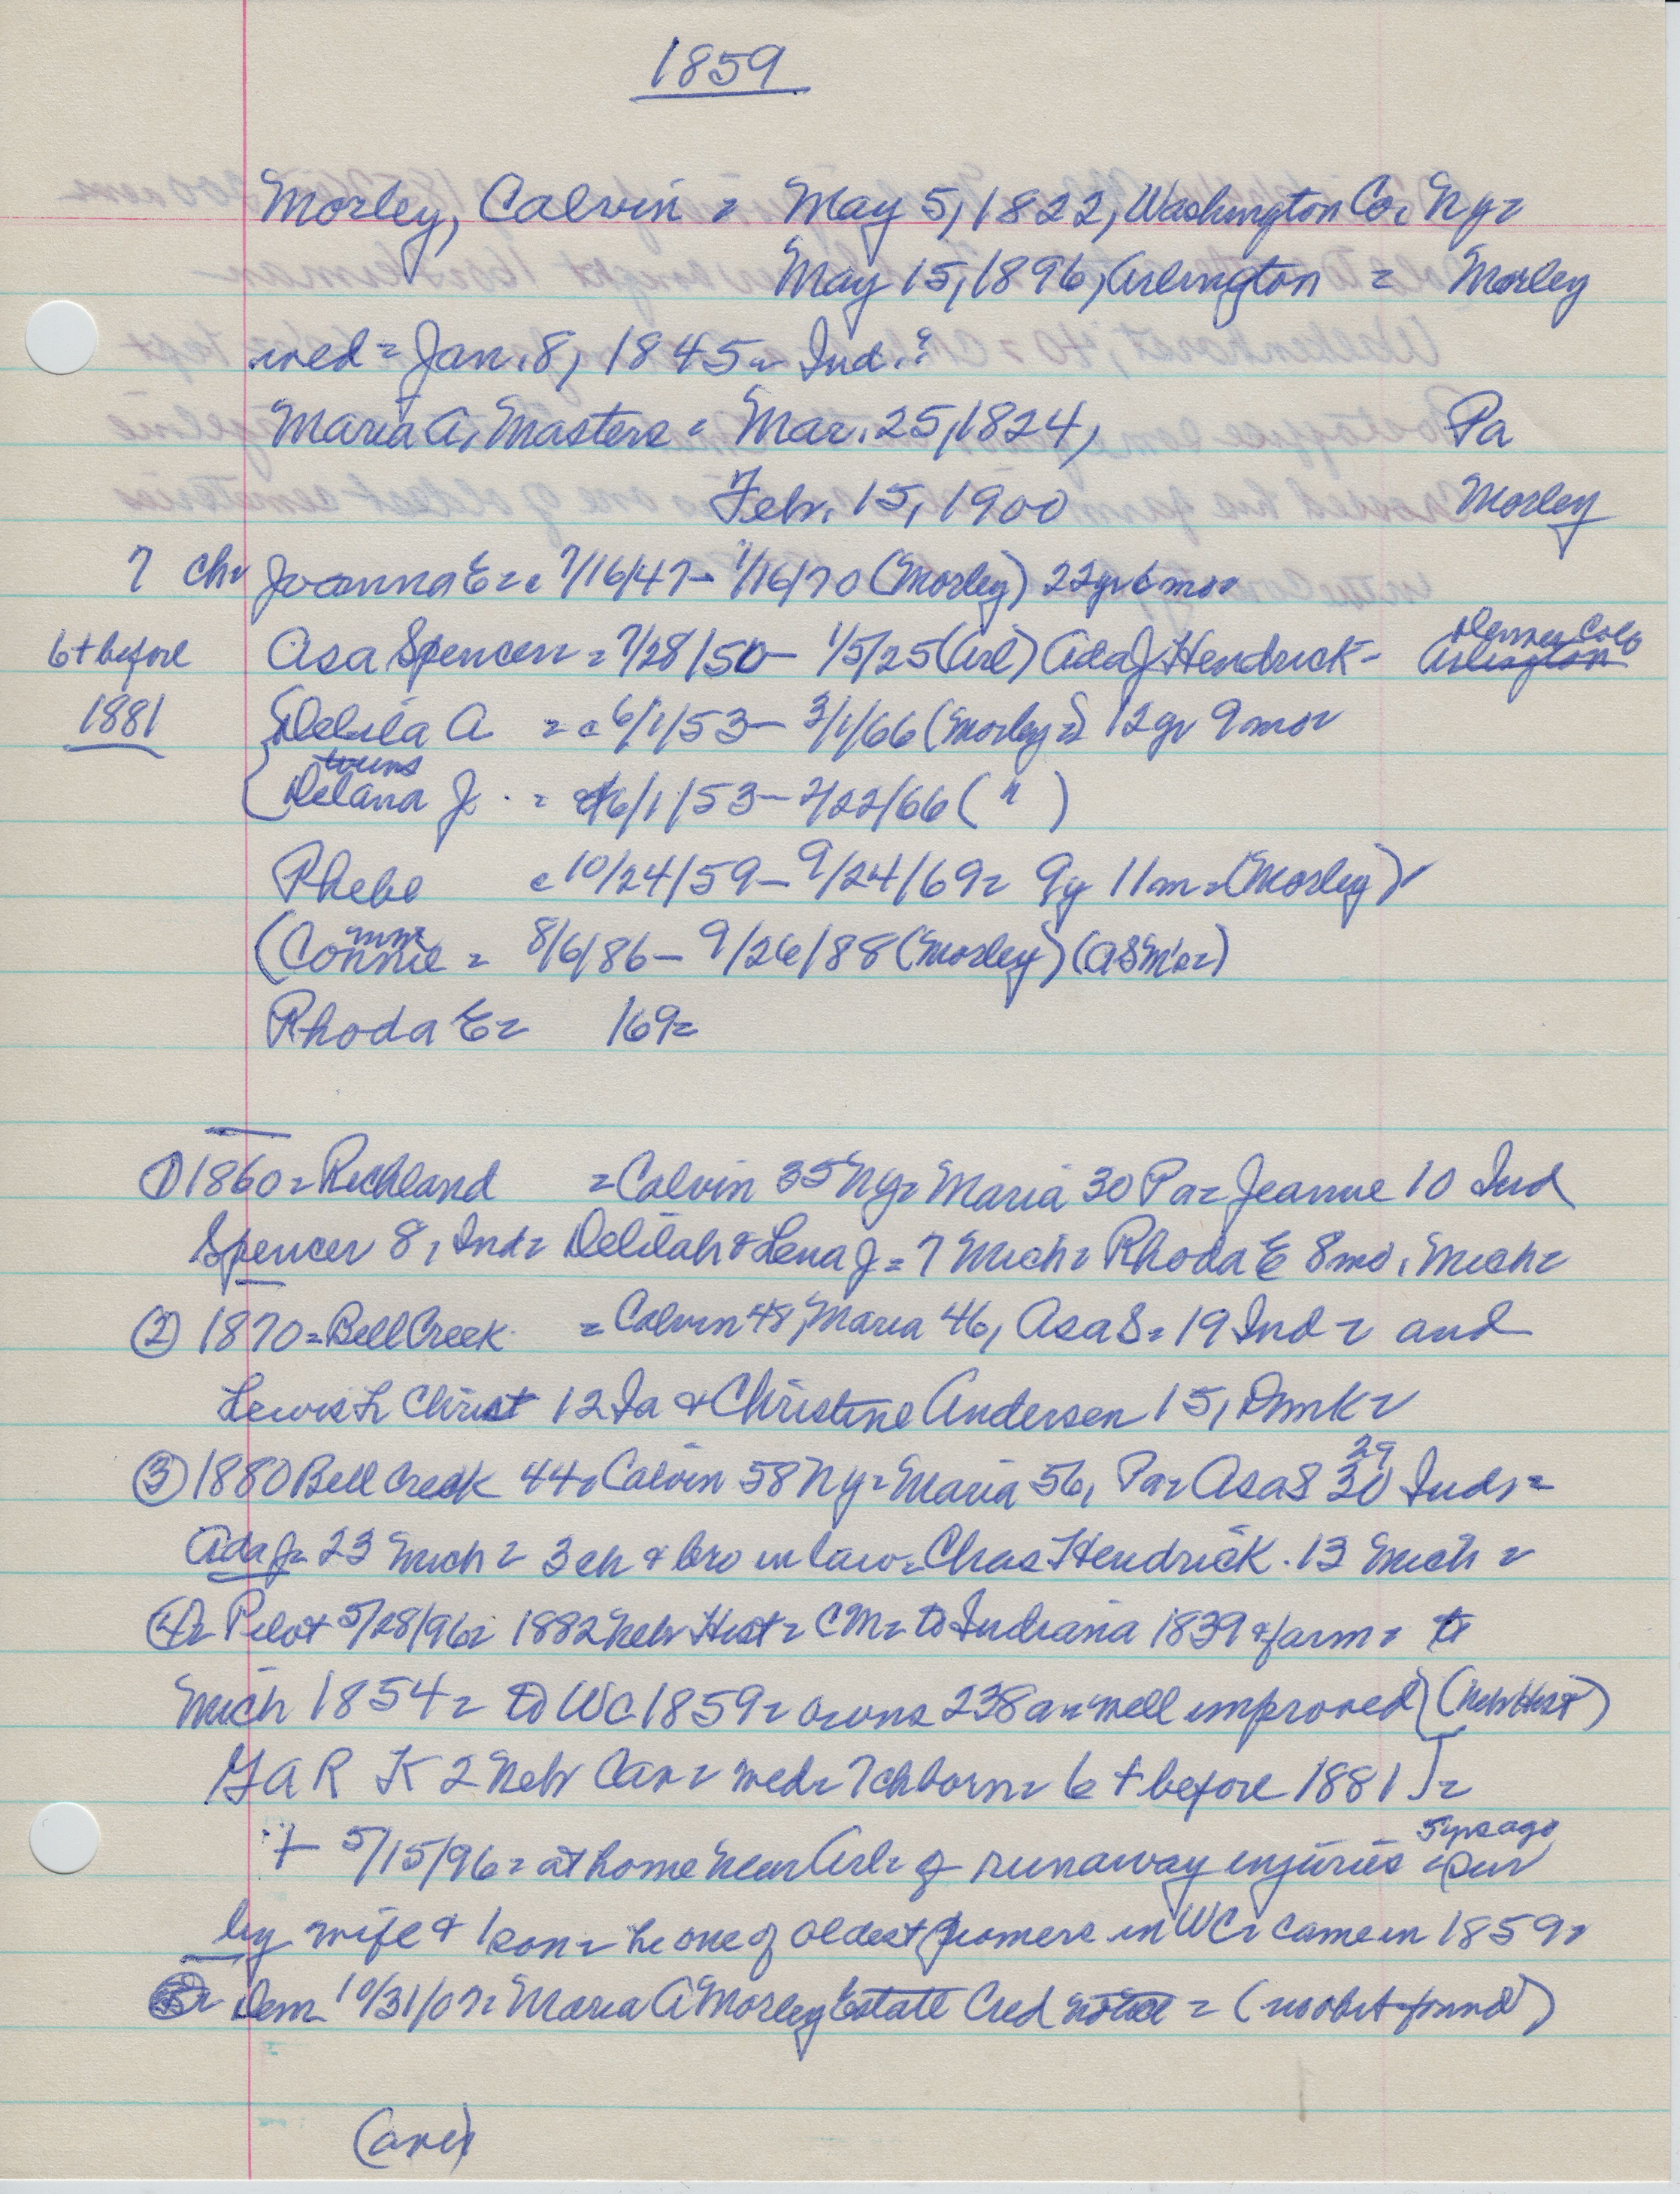 1859
Morley, Calvin = May 5, 1822, Washington Co, Ny=
May 15, 1896, Arlington = Morley
wed = Jan. 8, 1845 = Ind.?
Maria A. Masters = Mar. 25, 1824, Pa
Feb. 15, 1900 Morley
7 ch= Joanna E= c 7/16/47 - 1/16/70 (Morley) 22yr 6 mo=
Denver Colo
6 + before Asa Spencer = 7/28/50 - 1/5/25 (Arl) Ada J Hendrick - Arlington
1881 {Delila A = c 6/1/53 - 3/1/66 (Morley=) 12yr 9mo=
twins
{Delana J. = c 6/1/53 - 2/22/66 ( " )
Phebe c 10/24/59 - 9/24/69 = 9y 11m = (Morley)
mm
(Connie = 8/6/86 - 9/26/88 (Morley) (ASM's=)
Rhoda E= 169=
① 1860 = Richland = Calvin 35 Ny= Maria 30 Pa= Jeanne 10 Ind
Spencer 8, Ind= Delilah & Lena J = 7 Mich= Rhoda E 8mo, Mich=
② 1870 = Bell Creek = Calvin 48, Maria 46, Asa S= 19 Ind = and
Lewis L Christ 12 Ia & Christine Andersen 15, Dmk=
29
③ 1880 Bell Creek 44= Calvin 58 Ny= Maria 56, Pa= Asa S 30 Ind=
Ada J= 23 Mich = 3 ch & bro in law= Chas Hendrick. 13 Mich =
④= Pilot 5/28/96= 1882 Neb Hist= CM= to Indiana 1839 & farm= to
Mich 1854= to WC 1859= owns 238 a= well improved} (Neb Hist)
GAR K 2 Neb Cav= wed= 7 ch born= 6 + before 1881] =
5 yrs ago
+ 5/15/96 = at home near Arl= of runaway injuries = sur
by wife & 1 son= he one of oldest pioneers in WC= came in 1859=
⑤= Dem 10/31/07= Maria A Morley Estate Cred notice = (no obit found)
(over)